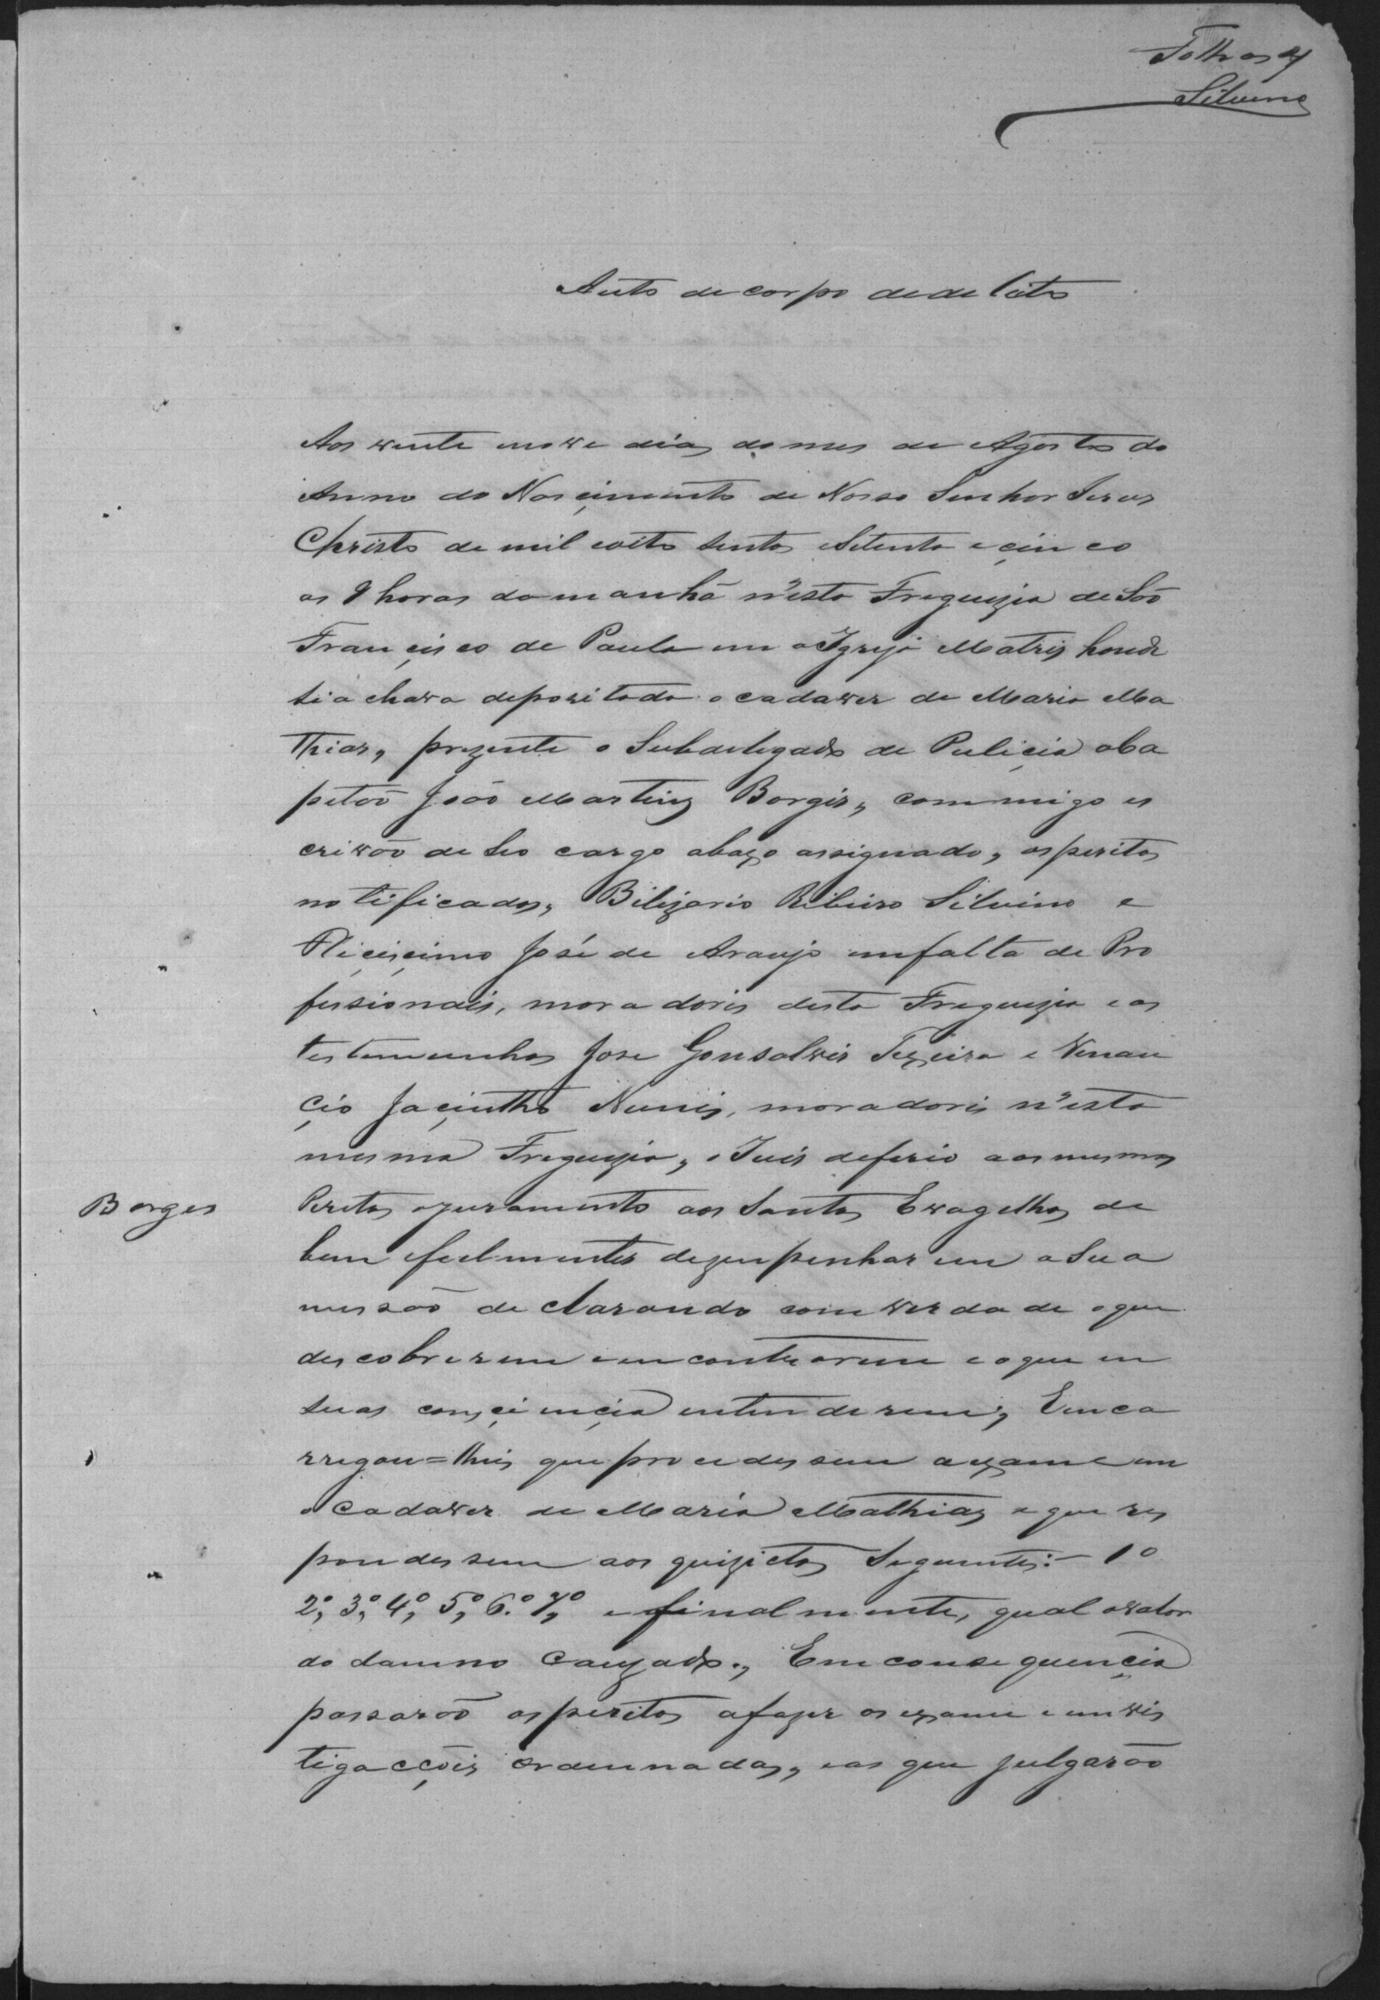 Folhas 4
Silvino
Auto de corpo de delito
Aos vente nove dias do mes de Agosto do
Anno do Nascimento de Nosso Senhor Jesus
Christo de mil oito sento e Setenta e çinco
as 9 horas da manhã n'esta Freguizia de São
Françisco de Paula em a Igreja Matris honde
si achava depositado o cadaver de Maria Ma
thias, prezente o Subdelegado de Puliçia oba
petão João Martins Borgis, commigo es
crivão de seo cargo abaxo assignado, os peritos
notificados, Bilizario Ribeiro Silvino e
Fliçiçimo José de Araujo em falta de Pro
fissionais, moradoris desta Freguizia e as
testemunhas Jose Gonsalvis Texeira e Venan
çio Jaçintho Nunis, moradoris n'esta
mesma Freguizia, o Juis deferio aos mesmos
Borges
Peritos o juramento aos Santos Evagelhos de
bem e fielmentes dezenpenharem a Sua
missão declarando com verdade o que
descobrirem e encontrarem e o que em
suas consçiençia entenderem; Enca
rregou=lhis que procedessem a exame em
o cadaver de Maria Mathias e que res
pondessem aos quizictos Seguintes:- 1º
2º, 3º, 4º, 5º, 6º. 7º, e finalmente, qual o valor
do damno Cauzado., Em consequençia
passarão os peritos a fazer os exame e invis
tigacções ordennadas, e as que julgarão